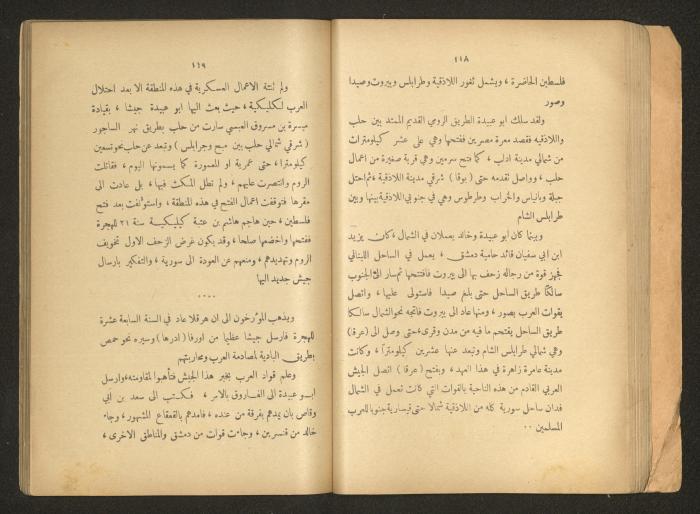 ١١٨
فلسطين الحاضرة ، ويشمل ثغور اللاذقية وطرابلس وبيروت وصيدا
وصور
ولقد سلك ابو عبيدة الطريق الرومي القديم الممتد بين حلب
واللاذقية فقصد معرة مصرين ففتحها وهي على عشر كيلومترات
من شمالي مدينة ادلب ، كما فتح سرمين وهي قرية صغيرة من اعمال
حلب ، وواصل تقدمه حتى ( بوقا ) شرقي مدينة اللاذقية ، ثم احتل
جبلة وبانياس والخراب وطرطوس وهي في جنوبي اللاذقية بينها وبين
طرابلس الشام
وبينما كان ابو عبيدة وخالد يعملان في الشمال ، كان يزيد
ابن ابي سفيان قائد حامية دمشق ، يعمل في الساحل اللبناني
فجهز قوة من رجاله زحف بها الى بيروت فافتتحها ثم سار الى الجنوب
سالكاً طريق الساحل حتى بلغ صيدا فاستولى عليها ، واتصل
بقوات العرب بصور ، ومنها عاد الى بيروت فاتجه نحو الشمال سالكا
طريق الساحل يفتحم ما فيه من مدن وقرى ، حتى وصل الى ( عرقا )
وهي شمالي طرابلس الشام وتبعد عنها عشرين كيلومتراً ، وكانت
مدينة عامرة زاهرة في هذا العهد ، وبفتح ( عرقا ) اتصل الجيش
العربي القادم من هذه الناحية بالقوات التي كانت تعمل في الشمال
فدان ساحل سورية كله من اللاذقية شمالا حتى قيسارية جنوبا للعرب
المسلمين ..
١١٩
ولم تنته الاعمال العسكرية في هذه المنطقة الا بعد احتلال
العرب لكليكية ، حيث بعث اليها ابو عبيدة جيشا ، بقيادة
ميسرة بن مسروق العبسي سارت من حلب بطريق نهر الساجور
( شرقي شمالي حلب بين منبج وجرابلس ) وتبعد عن حلب نحو تسعين
كيلومترا ، حتى عمرية او العمورة كما يسمونها اليوم ، فقاتلت
الروم وانتصرت عليهم ، ولم تطل المكث فيها ، بل عادت الى
مقرها فتوقفت اعمال الفتح في هذه المنطقة ، واستؤنفت بعد فتح
فلسطين ، حين هاجم هاشم بن عتبة كيليكية سنة ٢١ للهجرة
ففتحها واخضعها صلحا ، وقد يكون غرض الزحف الاول تخويف
الروم وتهديدهم ، ومنعهم عن العودة الى سورية ، والتفكير بارسال
جيش جديد اليها
....
ويذهب المؤرخون الى ان هرقلا عاد في السنة السابعة عشرة
للهجرة فارسل جيشا عظيما من اورفا ( ادرها ) وسيره نحو حمص
بطريق البادية لمصادمة العرب ومحاربتهم
وعلم قواد العرب بخبر هذا الجيش فتأهبوا لمقاومته ، وارسل
ابو عبيدة الى الفاروق بالامر ، فكتب الى سعد بن ابي
وقاص بان يمدهم بفرقة من عنده ، فامدهم بالقعقاع المشهور ، وجاء
خالد من قنسرين ، وجاءت قوات من دمشق والمناطق الاخرى ،